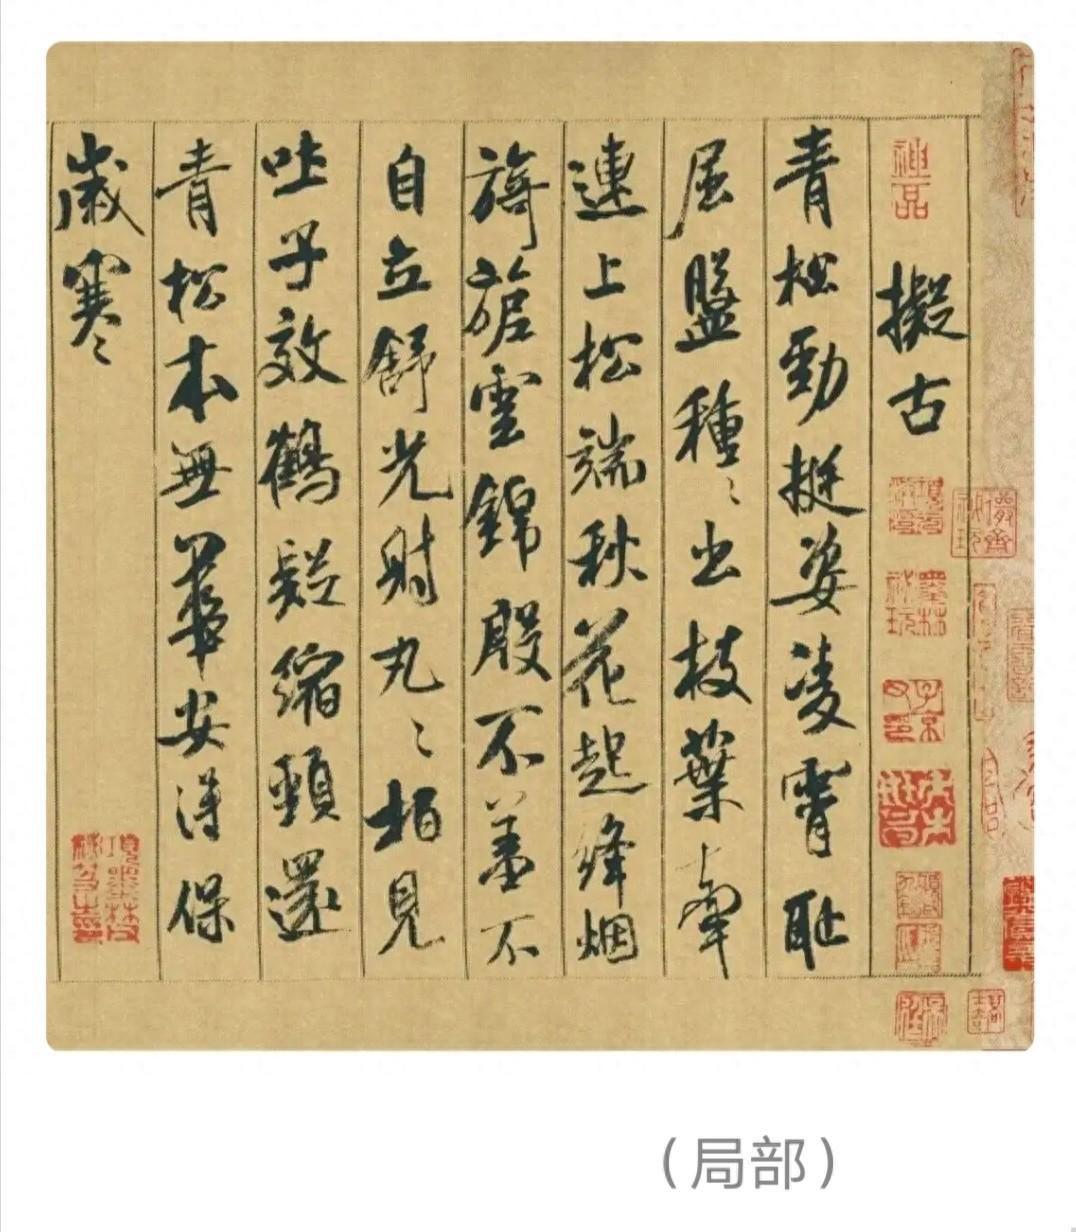 神品
擬古
青松勁挺姿凌霄耻
屈盤種〻出枝葉牽
連上松端秋花起絳烟
旖旎雲錦殷不羞不
自立舒光射丸〻柏見
吐子效鶴疑縮頸還
青松本無華安得保
歲寒〻
（局部）